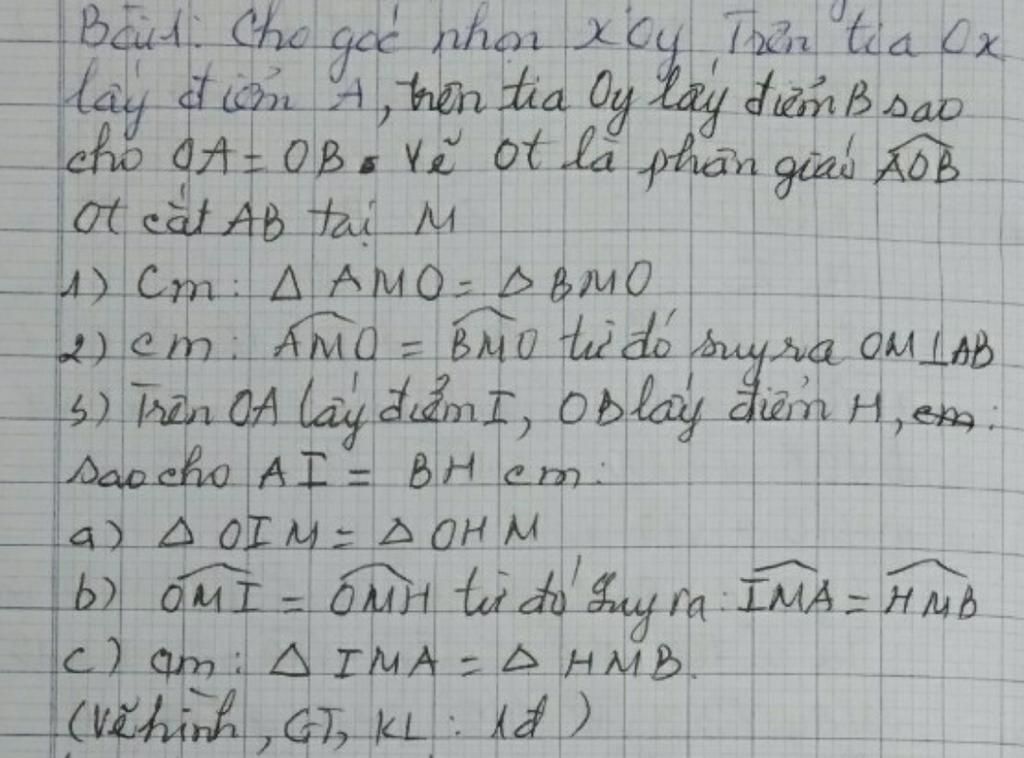 Bài 1: Cho góc nhọn xOy Trên tia Ox
lấy điểm A, trên tia Oy lấy điểm B sao
cho OA = OB. Vẽ Ot là phân giác \widehat{AOB}
Ot cắt AB tại M
1) Cm: Δ AMO = Δ BMO
2) cm: \widehat{AMO} = \widehat{BMO} từ đó suy ra OM ⊥ AB
3) Trên OA lấy điểm I, OB lấy điểm H, cm:
sao cho AI = BH cm:
a) Δ OIM = Δ OHM
b) \widehat{OMI} = \widehat{OMH} từ đó suy ra: \widehat{IMA} = \widehat{HMB}
c) cm: Δ IMA = Δ HMB.
(Vẽ hình, GT, KL: 1đ)